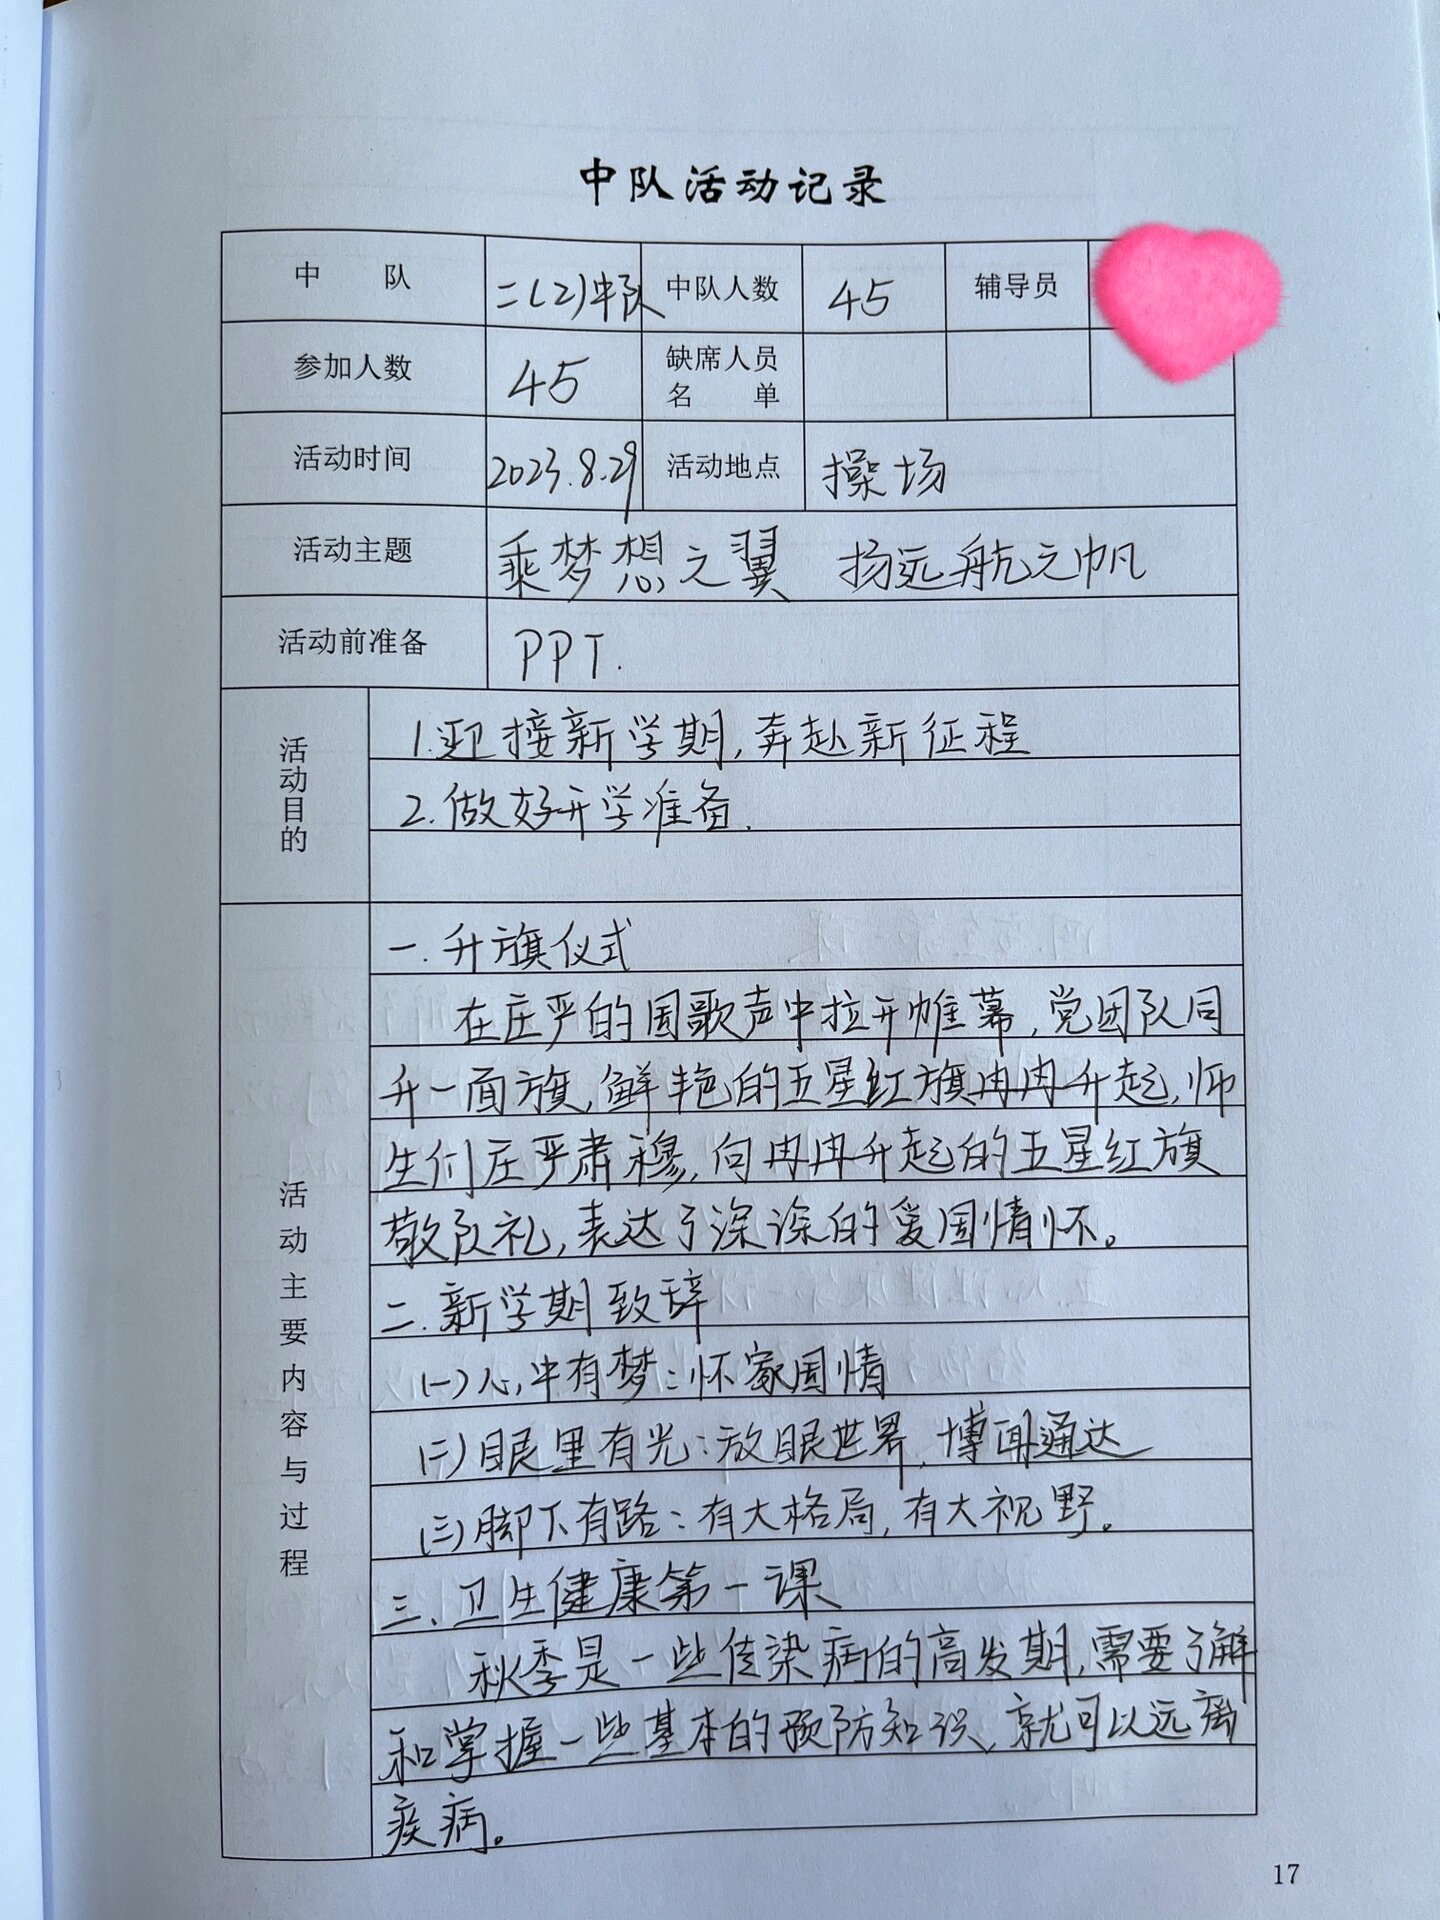 中队活动记录
中 队 二(2)中队 中队人数 45 辅导员
参加人数 45 缺席人员名 单
活动时间 2023.8.29 活动地点 操场
活动主题 乘梦想之翼 扬远航之帆
活动前准备 PPT.
活动目的
1.迎接新学期,奔赴新征程
2.做好开学准备.
活动主要内容与过程
一.升旗仪式
在庄严的国歌声中拉开帷幕,党团队同
升一面旗,鲜艳的五星红旗冉冉升起,师
生们庄严肃穆,向冉冉升起的五星红旗
敬队礼,表达了深深的爱国情怀。
二.新学期致辞
(一)心中有梦:怀家国情
(二)眼里有光:放眼世界,博闻通达
(三)脚下有路:有大格局,有大视野。
三、卫生健康第一课
秋季是一些传染病的高发期,需要了解
和掌握一些基本的预防知识,就可以远离
疾病。
17